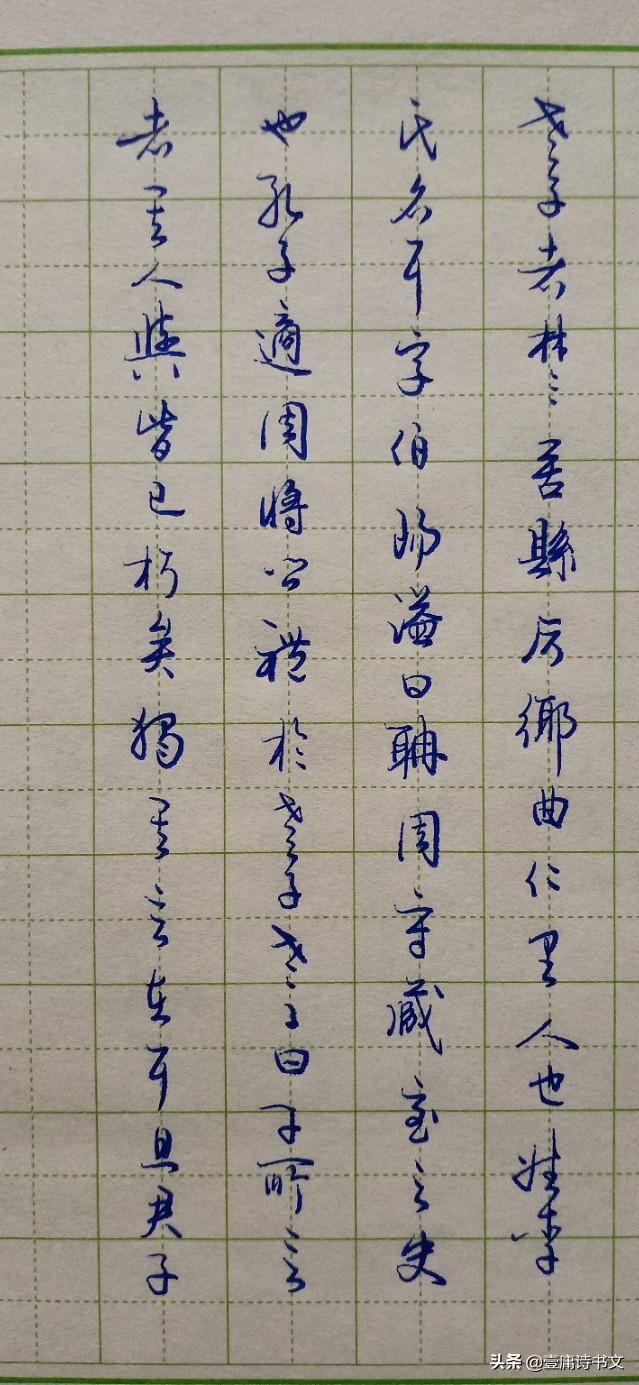 老子者楚苦縣厉鄉曲仁里人也姓李
氏名耳字伯陽謚曰聃周守藏室之史
也孔子適周將問禮於老子老子曰子所言
者其人與皆已朽矣獨其言在耳且君子
头条 @壹庸诗书文